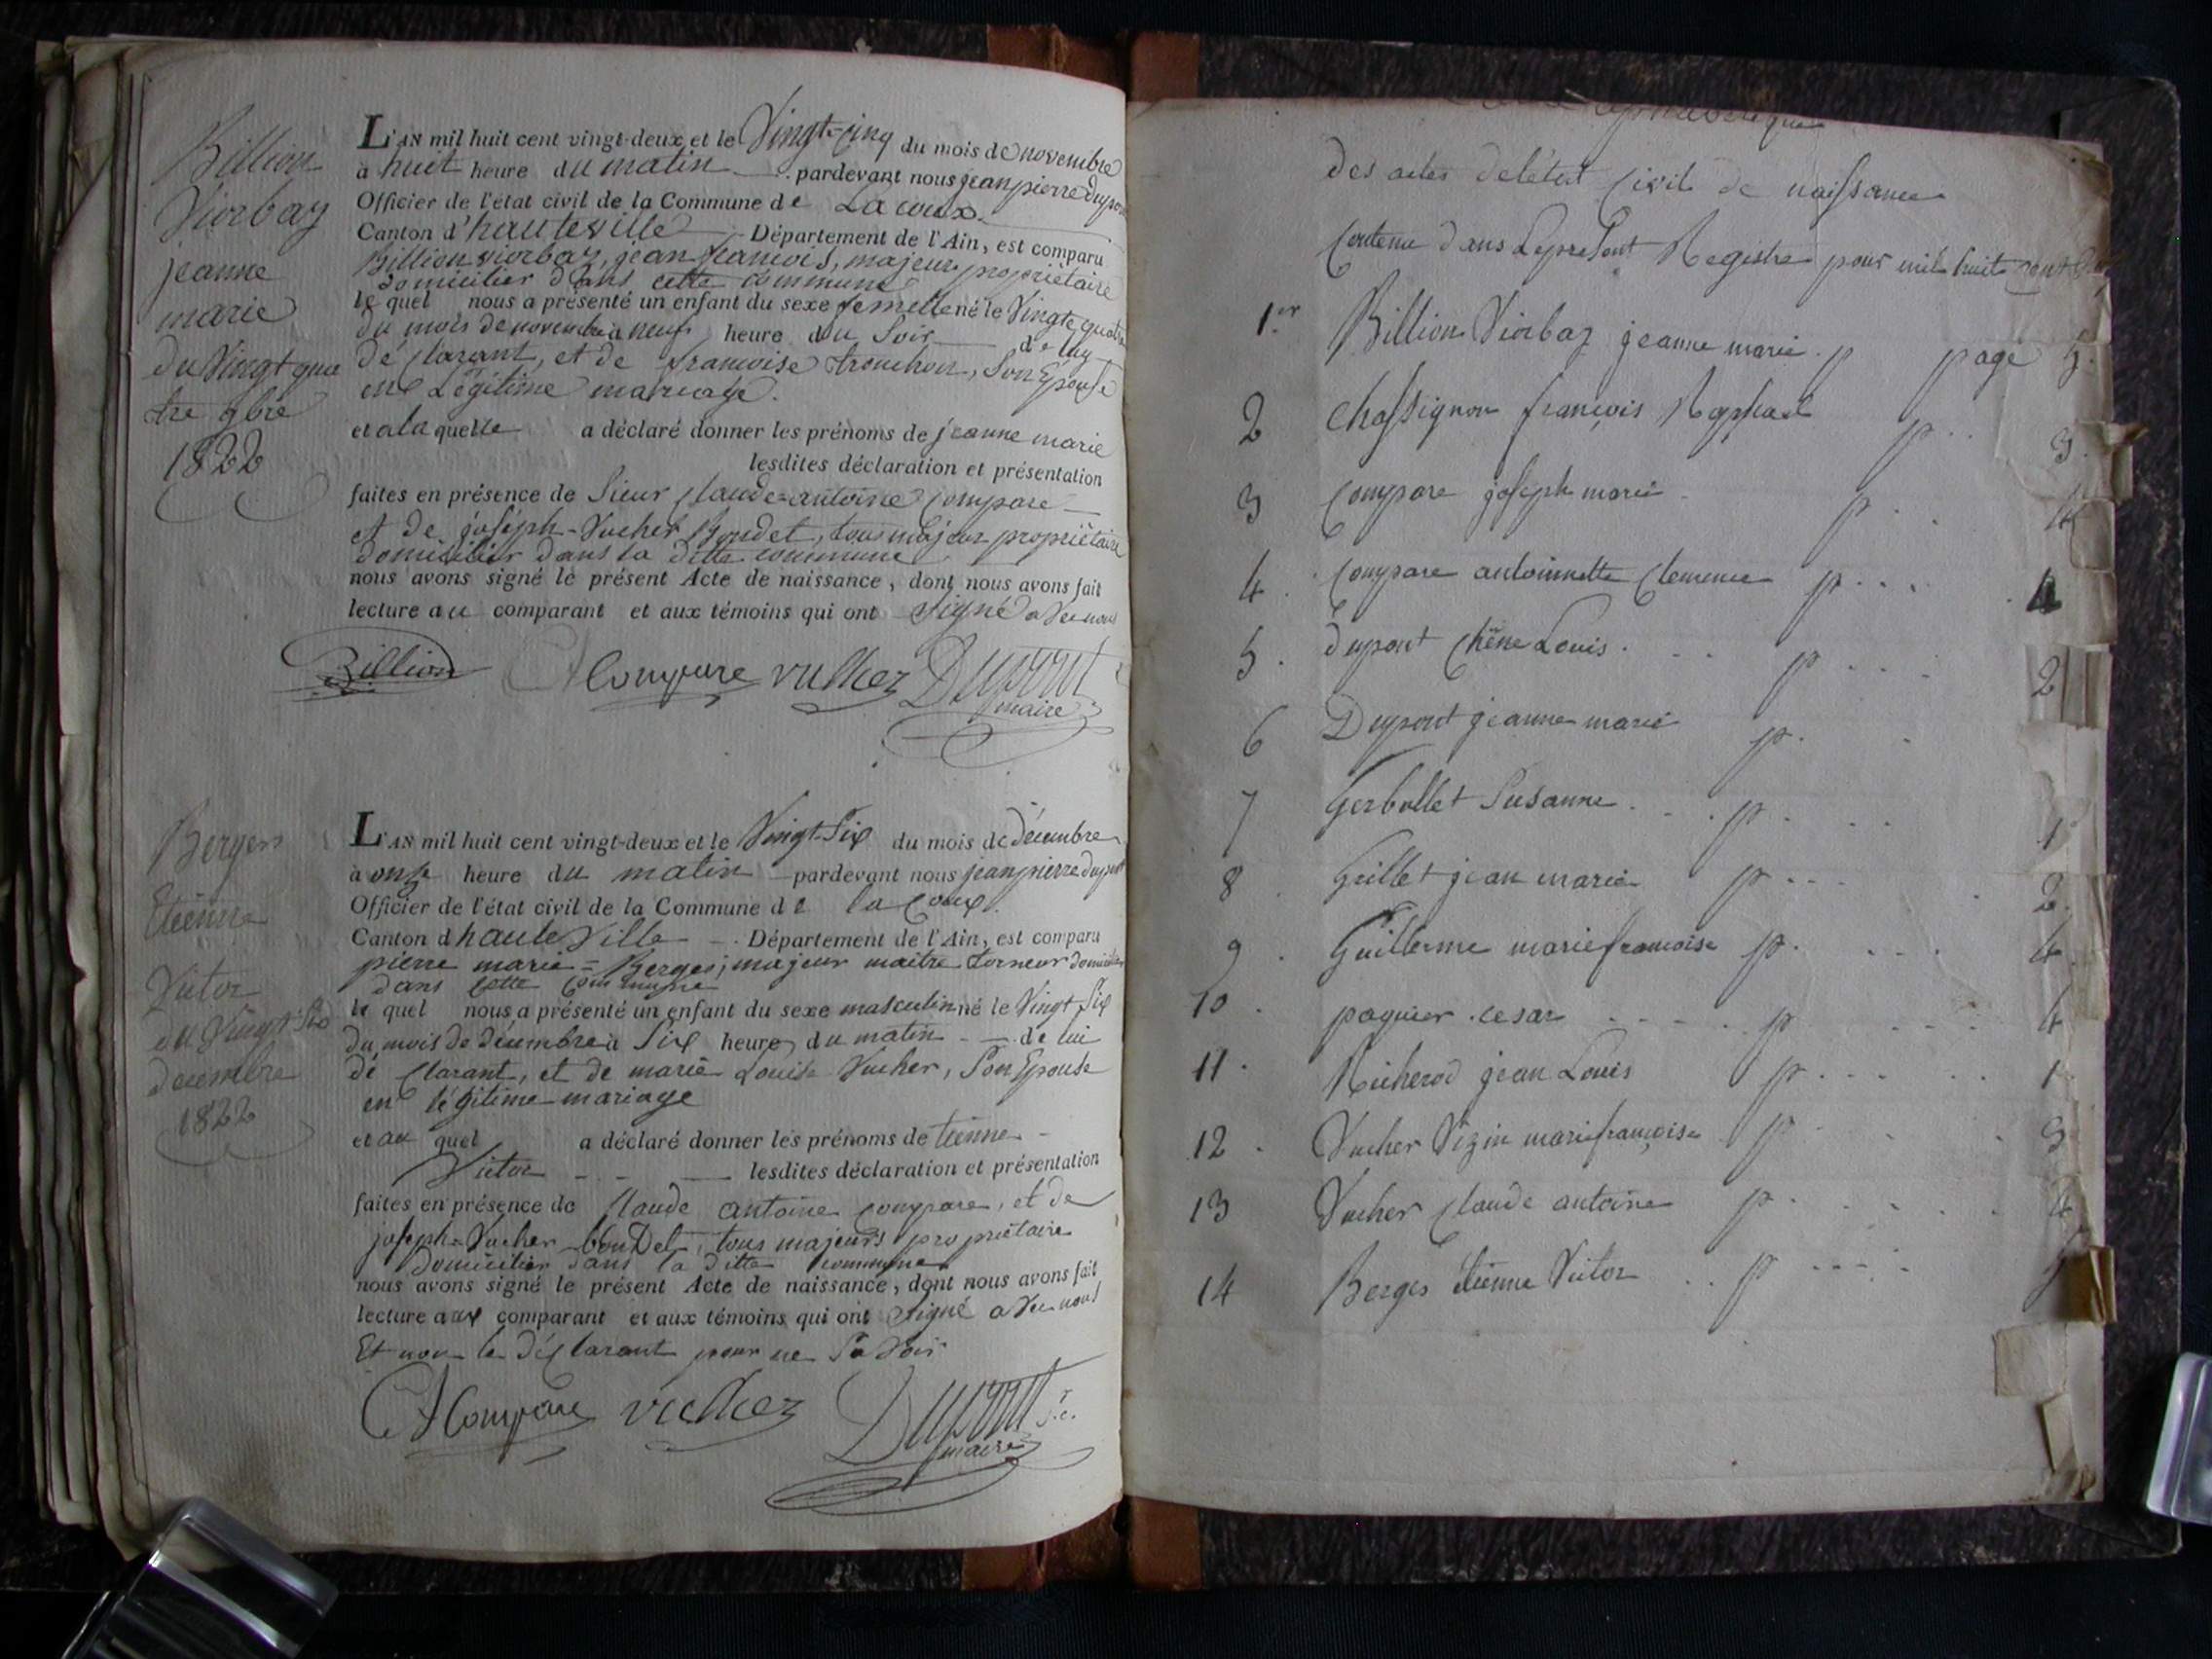 Billion
Viorbaz
jeanne
marie
du Vingt qua
tre 9bre
1822
L'AN mil huit cent vingt-deux et le Vingt-cinq du mois de novembre
à huit heure du matin pardevant nous jean pierre dupon
Officier de l'état civil de la Commune de La coux
Canton d'hauteville Département de l'Ain, est comparu
Billion viorbaz, jean francois, majeur propriétaire
domicilier dans cette commune
le quel nous a présenté un enfant du sexe femelle né le Vingt quatre
du mois de novembre à neuf heure du soir de luy
déclarant, et de francoise trouchon, son Epouse
en Légitime mariage.
et a la quelle a déclaré donner les prénoms de jeanne marie
lesdites déclaration et présentation
faites en présence de sieur claude=antoine compare
et de joseph-Vucher Boudet, tous majeur propriétaire
domicilier dans la ditte commune
nous avons signé le présent Acte de naissance, dont nous avons fait
lecture au comparant et aux témoins qui ont signé avec nous
Billion CA Compare vucher Dupont
maire
Berger
Etienne
Victor
du Vingt Six
decembre
1822
L'AN mil huit cent vingt-deux et le Vingt-Six du mois de décembre
à onze heure du matin pardevant nous jean pierre dupont
Officier de l'état civil de la Commune de la coux
Canton d hauteville Département de l'Ain, est comparu
pierre marie = Berger; majeur maitre torneur domicilier
dans cette commune
le quel nous a présenté un enfant du sexe masculin né le Vingt Six
du mois de décembre à Six heure du matin de lui
déclarant, et de marie Louise Vucher, Son Epouse
en légitime mariage
et au quel a déclaré donner les prénoms de tienne
Victor lesdites déclaration et présentation
faites en présence de claude antoine compare, et de
joseph=Vucher bouDet, tous majeurs propriétaire
domicilier dans la ditte commune
nous avons signé le présent Acte de naissance, dont nous avons fait
lecture aux comparant et aux témoins qui ont signé avec nous
Et non le déclarant pour ne Savoir
CA Compare vucher Dupont
maire
des actes de létat civil de naissance
Contenu dans Le present Registre pour mil huit cent
1.er Billion Viorbaz jeanne marie p page 5.
2 chassignon françois Raphael p 3.
3 Compare joseph marie p 4
4 Compare antoinnette clemence p 4
5 dupont chêne Louis p 2
6 Dupont jeanne marie p.
7 Gerbollet Susanne p 1
8 Guillet jean marie p 2
9 Guillerme marie francoise p 4
10 paquier cesar p 4
11 Richerod jean Louis p 1
12 Vucher Vizin marie françoise p 3
13 Vucher claude antoine p 4
14 Berger étienne Victor p